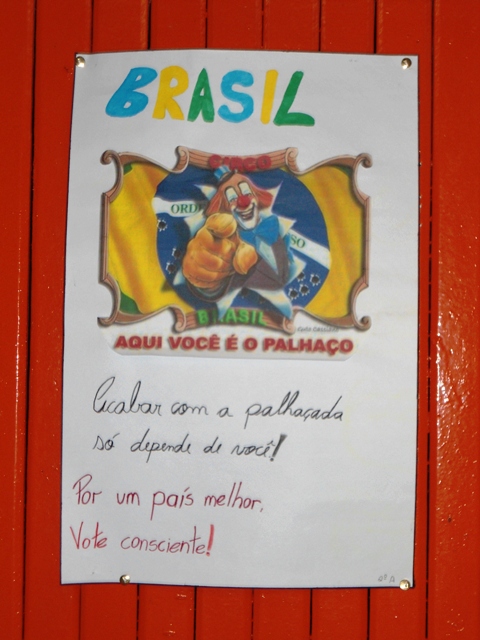 BRASIL
CIRCO
ORD
SO
BRASIL
AQUI VOCÊ É O PALHAÇO
Acabar com a palhaçada
só depende de você!
Por um país melhor,
Vote consciente!